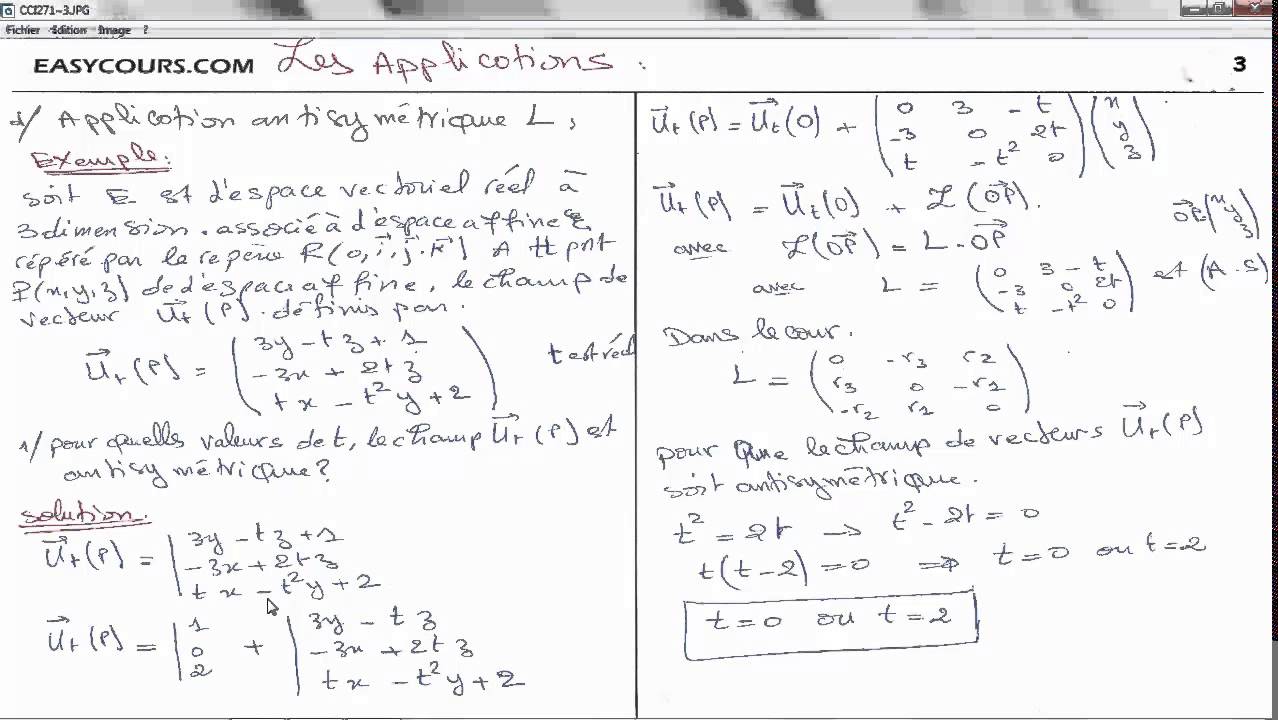 CCI271~3.JPG
Fichier Edition Image ?
EASYCOURS.COM Les Applications . 3
Application antisymétrique L,
Exemple:
soit E est d'espace vectoriel réel à
3 dimension. associé à d'espace affine ε
répéré par le repère R(0, i, j, k) A tt pnt
P(x,y,z) de d'espace affine, le champ de
vecteur U⃗t(P). définis par.
U⃗t(P) = ( 3y - tz + 1
-3x + 2tz
tx - t²y + 2 ) t est réel
1/ pour quelles valeurs de t, le champ U⃗t(P) est
antisymétrique?
solution.
U⃗t(P) = | 3y - tz + 1
-3x + 2tz
tx - t²y + 2
U⃗t(P) = | 1 0 2 + | 3y - tz
-3x + 2tz
tx - t²y + 2
U⃗t(P) = U⃗t(0) + ( 0 3 -t
-3 0 2t
t -t² 0 ) ( x y z )
U⃗t(P) = U⃗t(0) + L(OP⃗). OP⃗ ( x y z )
avec L(OP⃗) = L . OP⃗
avec L = ( 0 3 -t
-3 0 2t
t -t² 0 ) est (A.S)
Dans le cour.
L = ( 0 -r3 r2
r3 0 -r1
-r2 r1 0 )
pour que le champ de vecteurs U⃗t(P)
soit antisymétrique.
t² = 2t → t² - 2t = 0
t(t-2) = 0 ⇒ t=0 ou t=2
t=0 ou t=2